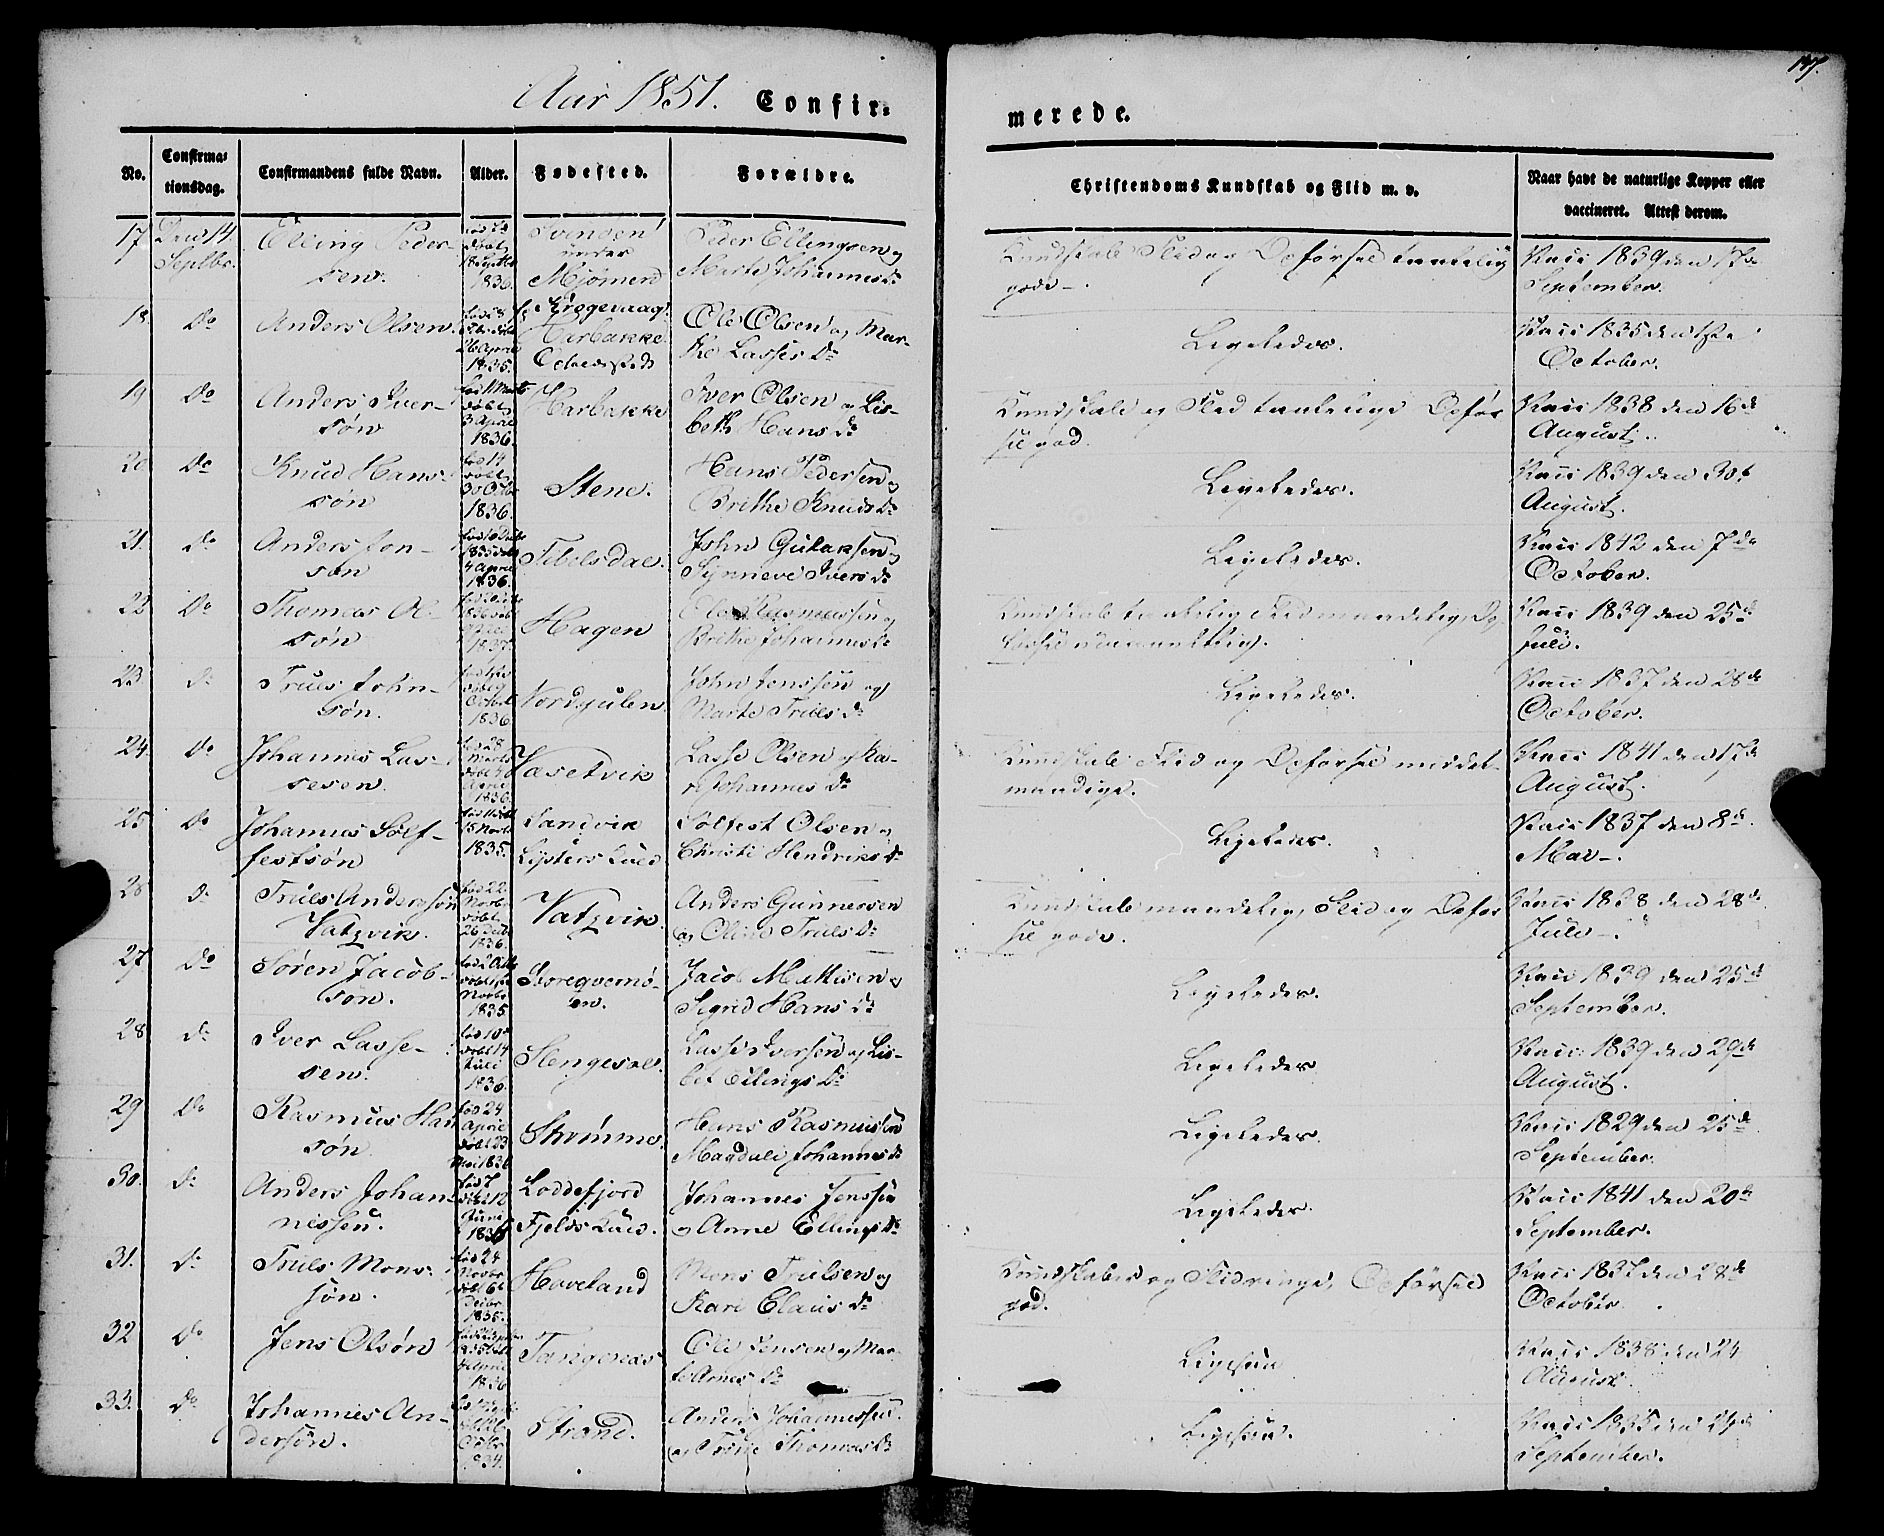 147.
Aar 1851. Confir-
merede.
No.
Confirma-
tionsdag.
Confirmandens fulde Navn.
Alder.
Fødested.
Forældre.
Christendoms Kundskab og Flid m. v.
Naar havt de naturlige Kopper eller
vaccineret. Attest derom.
17
Den 14
Septbr.
Elling Peder-
sen.
1836.
under
Mjømend
Peder Ellingsen og
Marte Johannes Dr
Kundskab Flid og Opførsel temmelig
gode.
Vacc 1839 den 17de
September.
18.
Do
Anders Olsen.
26 April
1835.
Krogevaag
Harbakke
Ole Olsen og Mar-
the Lasses Dr
Ligeledes.
Vacc 1835 den 1ste
October.
19
Do
Anders Iver-
søn
3 April
1836.
Harbakke
Iver Olsen og Lis-
beth Hans Dr
Kundskab og Flid taalelige Opfør
sel god.
Vacc 1838 den 16de
August.
20
Do
Knud Hans-
søn
fød 14
døbt
30 Octbr
1836.
Stene.
Hans Pedersen og
Brithe Knuds Dr
Ligeledes.
Vacc 1839 den 30te
August.
21.
Do
Anders Jon-
søn
4 April
1836.
Tibelsdal.
John Gulaksen og
Synneve Ivers Dr
Ligeledes.
Vacc 1842 den 7de
October.
22
Do
Thomas Ol-
søn
1837.
Hagen
Ole Rasmussen og
Brithe Johannes Dr
Kundskab taalelig Flid maadelig, Op-
førsel
Vacc 1839 den 25de
Juli.
23
Do
Truls John-
søn.
1836
Nordgulen
John Jenssen og
Marte Truls Dr
Ligeledes.
Vacc 1837 den 28de
October.
24.
Do
Johannes Las-
sesen.
fød 28
Marts
døbt
April
1836.
Vasetvik
Lasse Olsen og Ka-
ri Johannes Dr
Kundskab Flid og Opførsel middel-
maadige.
Vacc 1841 den 17de
August.
25
Do
Johannes Solf-
festsøn
15 Novbr
1835.
Sandvik
Solfest Olsen og
Christi Hendriks Dr
Ligeledes.
Vacc 1837 den 8de
Mai.
26
Do
Truls Andersøn
Vatzvik.
fød 22
Novbr
døbt
26 Decbr
1836.
Vatzvik.
Anders Gunnersen
og Oline Truls Dr
Kundskab maadelig, Flid og Opfør
sel gode.
Vacc 1838 den 28de
Juli.
27
Do
Søren Jacob-
søn.
Novbr
1835
Storeqvernø-
en.
Jacob Mathisen og
Sigrid Hans Dr
Ligeledes.
Vacc 1839 den 25de
September.
28
Do
Iver Lasse-
sen.
fød 10de
døbt 14
Juli
1836.
Stengesal.
Lasse Iversen og Lis-
bet Ellings Dr
Ligeledes
Vacc: 1839 den 29de
August.
29
Do
Rasmus Han
søn.
fød 24
April
døbt 23
Mai 1836
Strømme.
Hans Rasmussen
Magdali Johannes Dr
Ligeledes.
Vacc 1829 den 25de
September.
30.
Do
Anders Johan-
nissen.
fød 7
døbt 12
Juni
1836
Loddefjord
Fjelds
Johannes Jenssen
og Anne Ellings Dr
Ligeledes.
Vacc 1841 den 20de
September.
31.
Do
Truls Mons-
søn.
fød 24
Novbr
døbt 6te
Decbr
1835.
Haveland
Mons Trulsen og
Kari Claus Dr
Kundskaber og Flid ringe, Opførsel
god.
Vacc 1837 den 28de
October.
32
Do
Jens Olsøn
April
1836
Tangenæs
Ole Jensen og Mar-
te Arnes Dr
Ligesaa
Vacc 1838 den 24
August.
33.
Do
Johannes An-
dersøn.
Strand.
Anders Johannessen
og Trine Thomas Dr
Ligesaa.
Vacc 1835 den 24de
September.